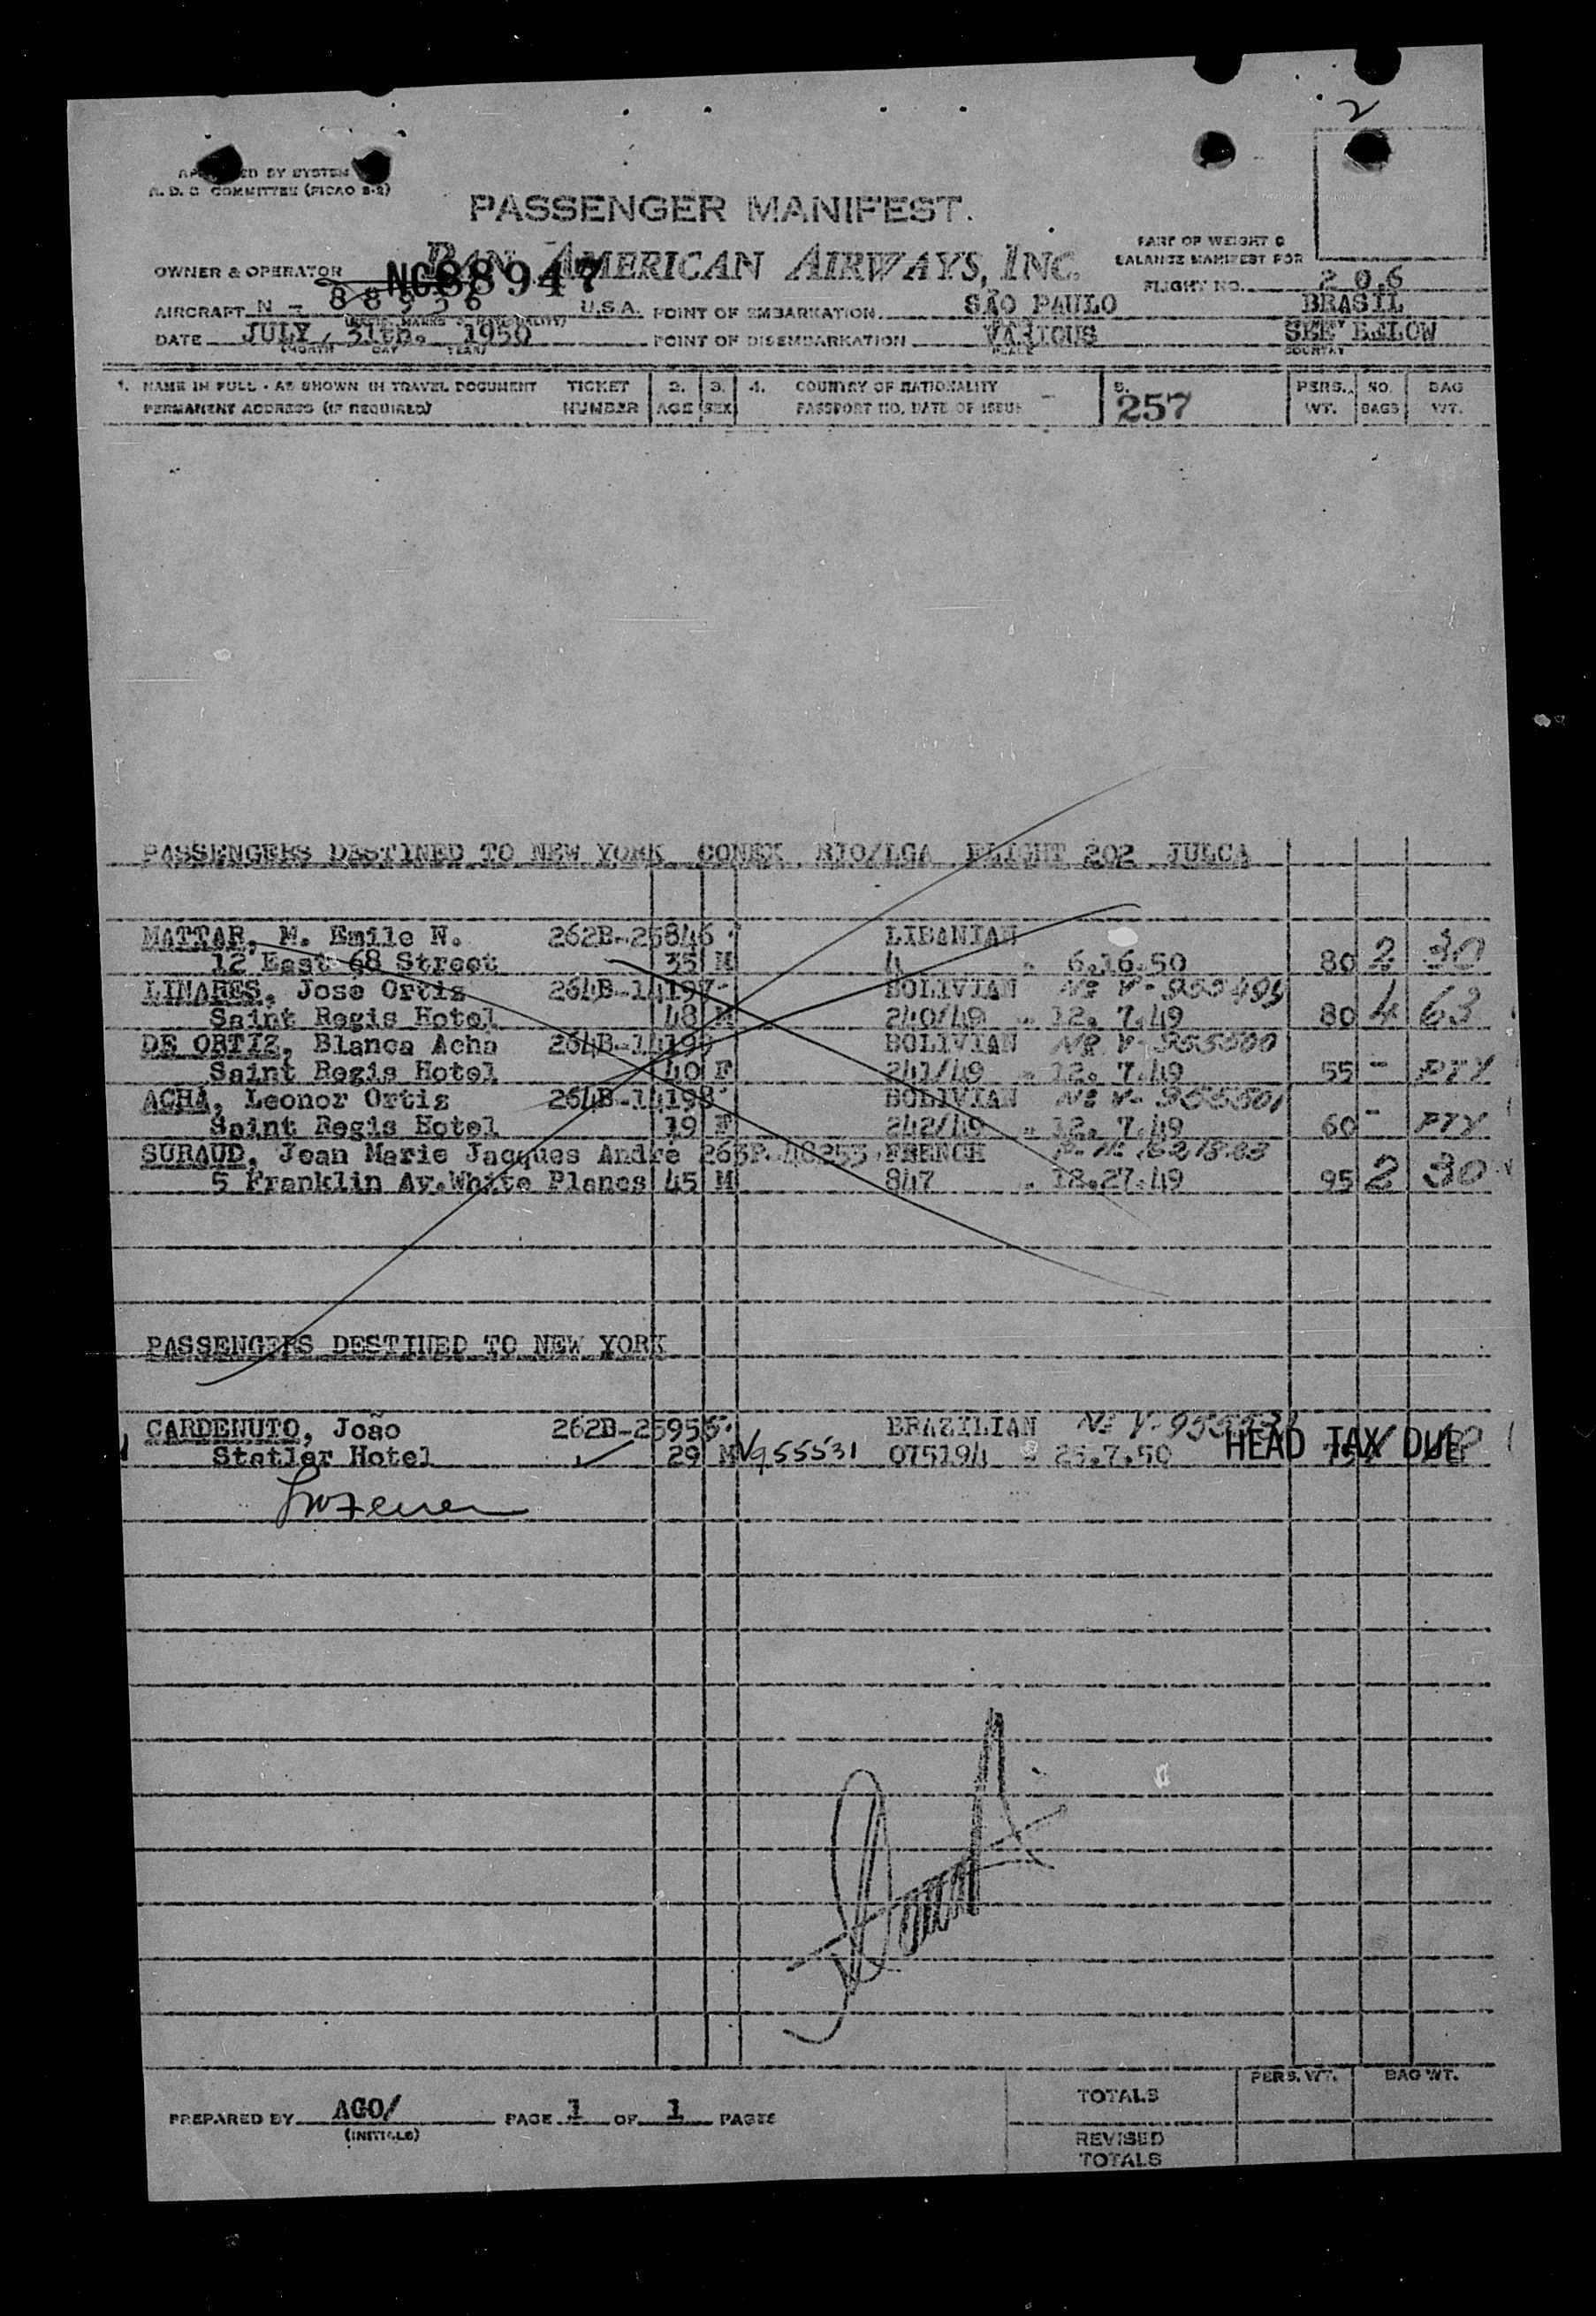 2
BY SYSTEM
A. D. C COMMITTEE (PICAO S-2)
PASSENGER MANIFEST.
PAN AMERICAN AIRWAYS, INC.
PART OF WEIGHT &
BALANCE MANIFEST FOR
OWNER & OPERATOR
NC88947
FLIGHT NO. 206
AIRCRAFT N - U.S.A. POINT OF EMBARKATION SÃO PAULO BRASIL
DATE JULY, 31th. 1950 POINT OF DISEMBARKATION VARIOUS SEE BELOW
(MONTH DAY YEAR) PLACE COUNTRY
1. NAME IN FULL - AS SHOWN IN TRAVEL DOCUMENT TICKET 2. 3. 4. COUNTRY OF NATIONALITY 5. PERS. NO. BAG
PERMANENT ADDRESS (IF REQUIRED) NUMBER AGE SEX PASSPORT NO. DATE OF ISSUE 257 WT. BAGS WT.
PASSENGERS DESTINED TO NEW YORK CONEX RIO/LGA FLIGHT 202 JULCA
MATTAR, M. Emile N. 262B-25846 LIBANIAN
12 East 68 Street 35 M 4 - 6.16.50 80 2 30
LINARES, Jose Ortiz 264B-14197 BOLIVIAN Nº V-955499
Saint Regis Hotel 48 M 240/49 - 12. 7.49 80 4 63
DE ORTIZ, Blanca Acha 264B-14199 BOLIVIAN Nº V-955500
Saint Regis Hotel 40 F 241/49 - 12. 7.49 55 - PTY
ACHÁ, Leonor Ortiz 264B-14198 BOLIVIAN Nº V-955501
Saint Regis Hotel 19 F 242/49 - 12. 7.49 60 - PTY
SURAUD, Jean Marie Jacques Andre 263P-48255 FRENCH
5 Franklin Av.White Planes 45 M 847 - 12.27.49 95 2 30
PASSENGERS DESTINED TO NEW YORK
CARDENUTO, João 262B-25955 BRAZILIAN Nº V-955531
Statler Hotel 29 M V955531 075194 - 25.7.50 HEAD TAX DUE
PERS. WT. BAG WT.
TOTALS
PREPARED BY AGO/ PAGE 1 OF 1 PAGES
(INITIALS)
REVISED
TOTALS